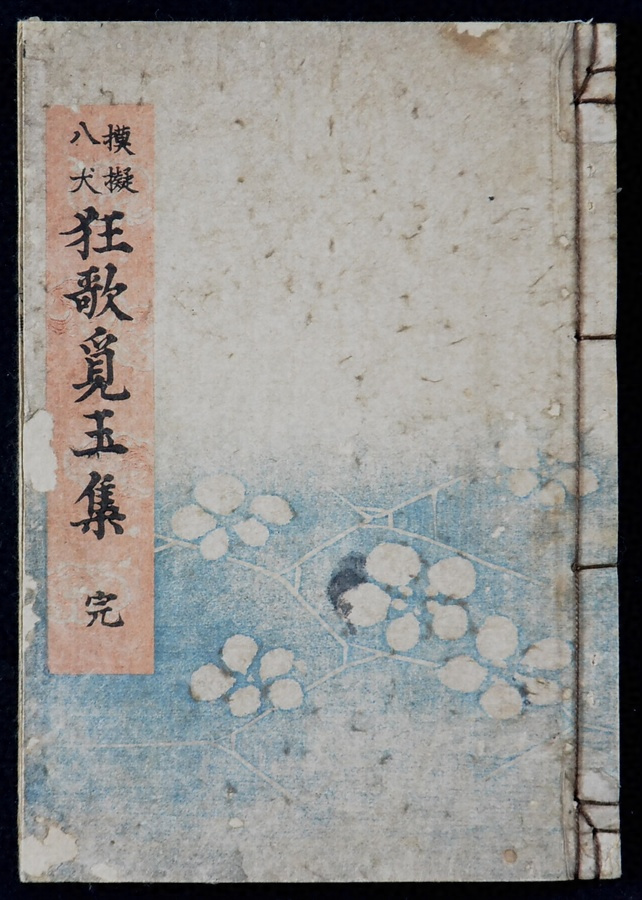 摸擬
八犬
狂歌覓玉集
完